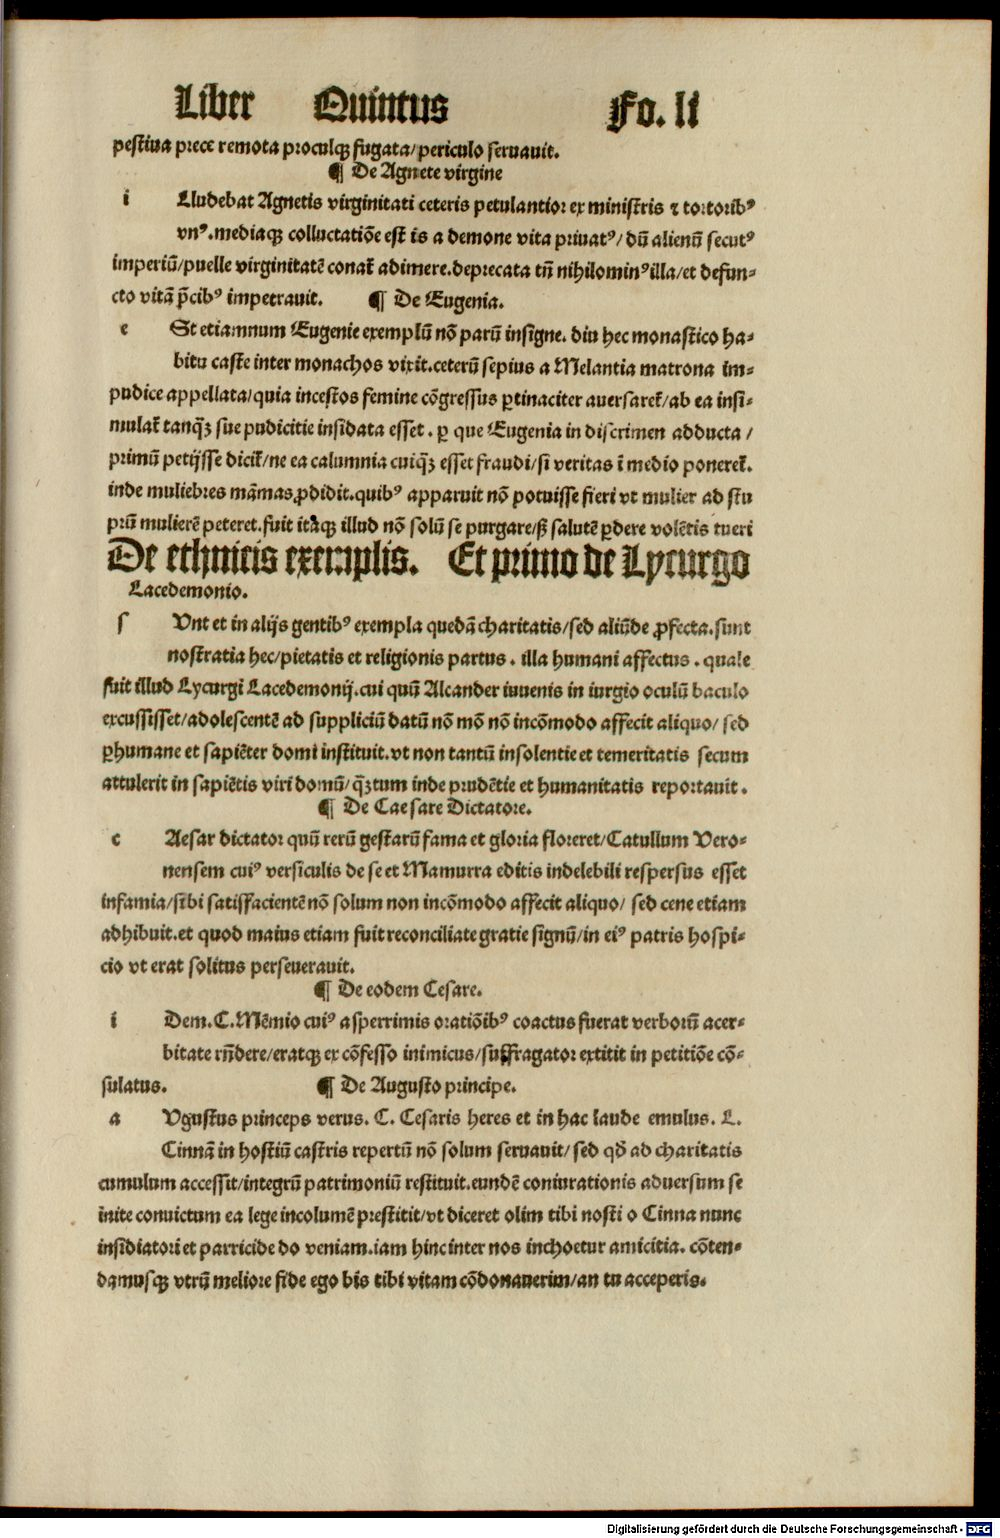 Liber Quintus Fo. li
pestiua prece remota proculqꝫ fugata/periculo seruauit.
¶ De Agnete virgine
i Lludebat Agnetis virginitati ceteris petulantior ex ministris ⁊ tortoribꝰ
vnꝰ.mediaqꝫ colluctatiōe est is a demone vita priuatꝰ/dū alienū secutꝰ
imperiū/puelle virginitatē conat̄ adimere.deprecata tn̄ nihilominꝰ illa/et defun-
cto vitā p̄cibꝰ impetrauit. ¶ De Eugenia.
e St etiamnum Eugenie exemplū nō parū insigne. diu hec monastico ha-
bitu caste inter monachos vixit.ceterū sepius a Melantia matrona im-
pudice appellata/quia incestos femine cōgressus ꝑtinaciter auersaret̄/ab ea insi-
mulat̄ tanqꝫ̄ sue pudicitie insidata esset. ꝑ que Eugenia in discrimen adducta /
primū petijsse dicit̄/ne ea calumnia cuiqꝫ̄ esset fraudi/si veritas ī medio poneret̄.
inde muliebres mām̄as ꝓdidit.quibꝰ apparuit nō potuisse fieri vt mulier ad stu
prū mulierē peteret.fuit itaqꝫ illud nō solū se purgare/sꝫ salutē ꝑdere volētis tueri
De ethnicis exemplis. Et primo de Lycurgo
Lacedemonio.
s Vnt et in alijs gentibꝰ exempla quedā charitatis/sed aliūde ꝓfecta.sunt
nostratia hec/pietatis et religionis partus. illa humani affectus. quale
fuit illud Lycurgi Lacedemonij.cui quū Alcander iuuenis in iurgio oculū baculo
excussisset/adolescentē ad suppliciū datū nō mō nō incōmodo affecit aliquo/ sed
ꝑhumane et sapiēter domi instituit.vt non tantū insolentie et temeritatis secum
attulerit in sapiētis viri domū/qꝫ̄tum inde prudētie et humanitatis reportauit.
¶ De Caesare Dictatore.
c Aesar dictator quū rerū gestarū fama et gloria floreret/Catullum Vero-
nensem cuiꝰ versiculis de se et Mamurra editis indelebili respersus esset
infamia/sibi satisfacientē nō solum non incōmodo affecit aliquo/ sed cene etiam
adhibuit.et quod maius etiam fuit reconciliate gratie signū/in eiꝰ patris hospi-
cio vt erat solitus perseuerauit.
¶ De eodem Cesare.
i Dem.C.Mēmio cuiꝰ asperrimis oratiōibꝰ coactus fuerat verborū acer-
bitate rn̄dere/eratqꝫ ex cōfesso inimicus/suffragator extitit in petitiōe cō-
sulatus. ¶ De Augusto principe.
a Vgustus princeps verus. C. Cesaris heres et in hac laude emulus. L.
Cinnā in hostiū castris repertū nō solum seruauit/ sed qd̄ ad charitatis
cumulum accessit/integrū patrimoniū restituit.eundē coniurationis aduersum se
inite conuictum ea lege incolumē prestitit/vt diceret olim tibi hosti o Cinna nunc
insidiatori et parricide do veniam.iam hinc inter nos inchoetur amicitia. cōten-
damusqꝫ vtrū meliore fide ego bis tibi vitam cōdonauerim/an tu acceperis.
Digitalisierung gefördert durch die Deutsche Forschungsgemeinschaft - DFG